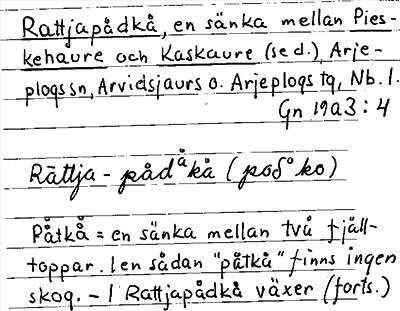 Rattjapådkå, en sänka mellan Pies-
kehaure och Kaskaure (se d.) Arje-
plogs sn, Arvidsjaurs o. Arjeplogs tg, Nb. l.
Gn 19A3:4
Rättja - påd°kå (poδ°ko)
Påtkå = en sänka mellan två fjäll-
toppar. I en sådan "påtkå" finns ingen
skog. - I Rattjapådkå växer (forts.)